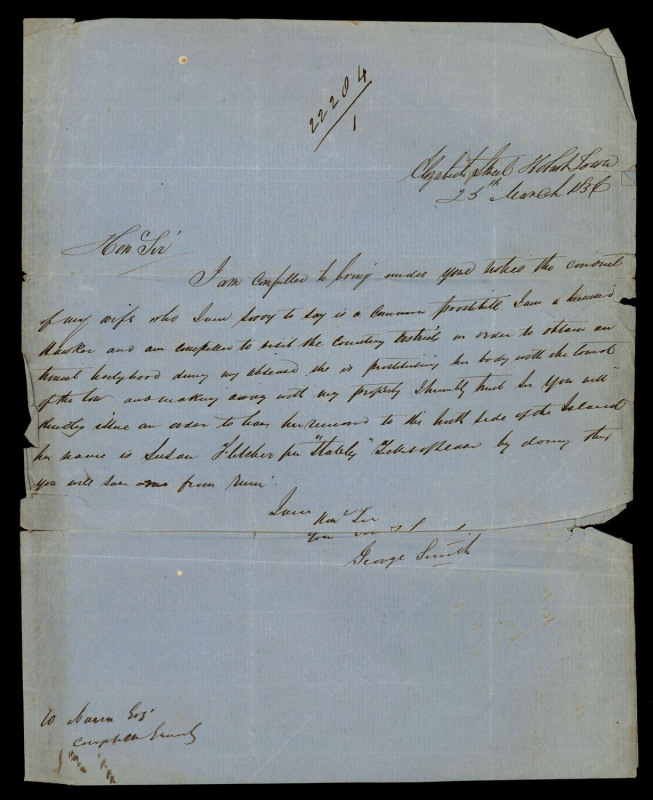 22204
1
Elizabeth Street Hobart Town
25th March 1856
Hon Sir
I am compelled to bring under your notice the conduct
of my wife who I am sorry to say is a common prostitute I am a licensed
Hawker and am compelled to visit the Country Districts in order to obtain an
honest livelyhood during my absence she is prostituting her body with the lowest
of the low and making away with my property I humbly trust Sir you will
kindly issue an order to have her removed to the north side of the Island
her name is Susan Fletcher per "Stately" Ticket of Leave by doing this
you will save me from ruin
I am
Hon Sir
Your
George Smith
To Nairn Esqr
Campbell Street